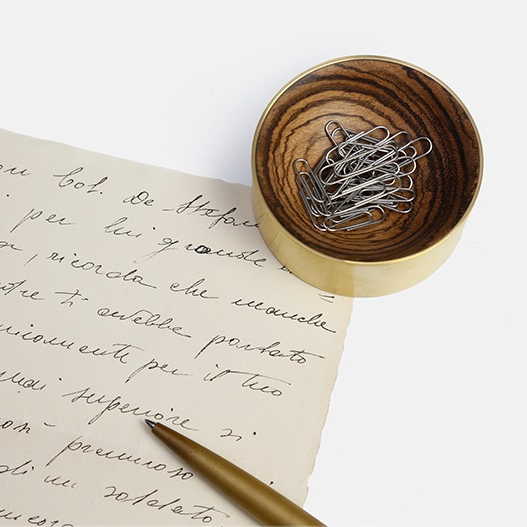 Col. De Stefan
i per lui grande
, ricorda che manche
tre ti avrebbe portato
nicamente per il tuo
mai superiore si
non - premuroso
di un soldato
ancora